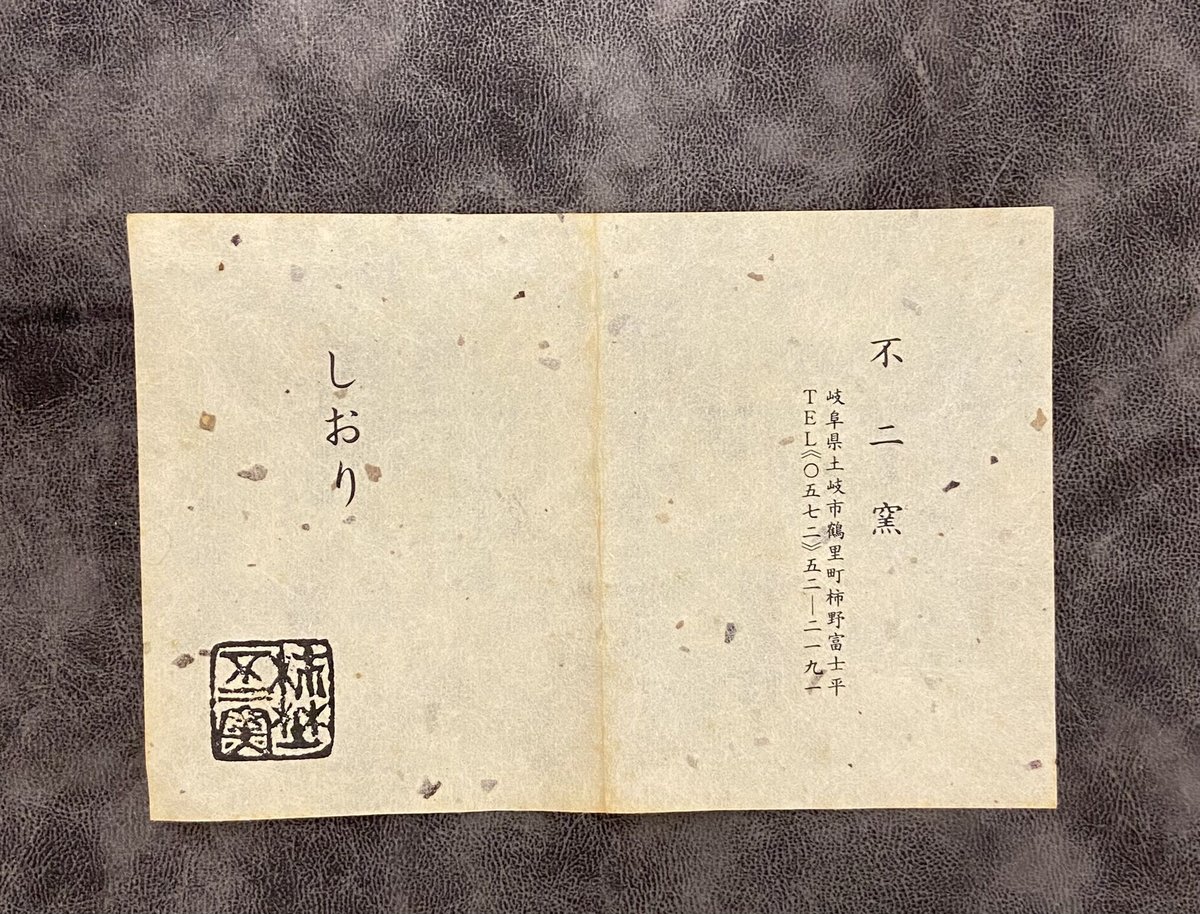 不二窯
岐阜県土岐市鶴里町柿野富士平
TEL《〇五七二》五二―二一九一
しおり
柿野
不二窯